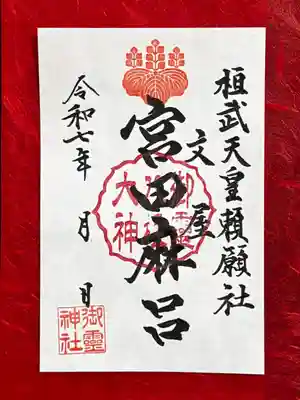 桓武天皇勅願社
文屋
宮田麻呂
令和七年 月 日
御靈
大神
御靈
神社